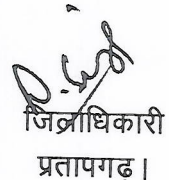 जिलाधिकारी
प्रतापगढ।